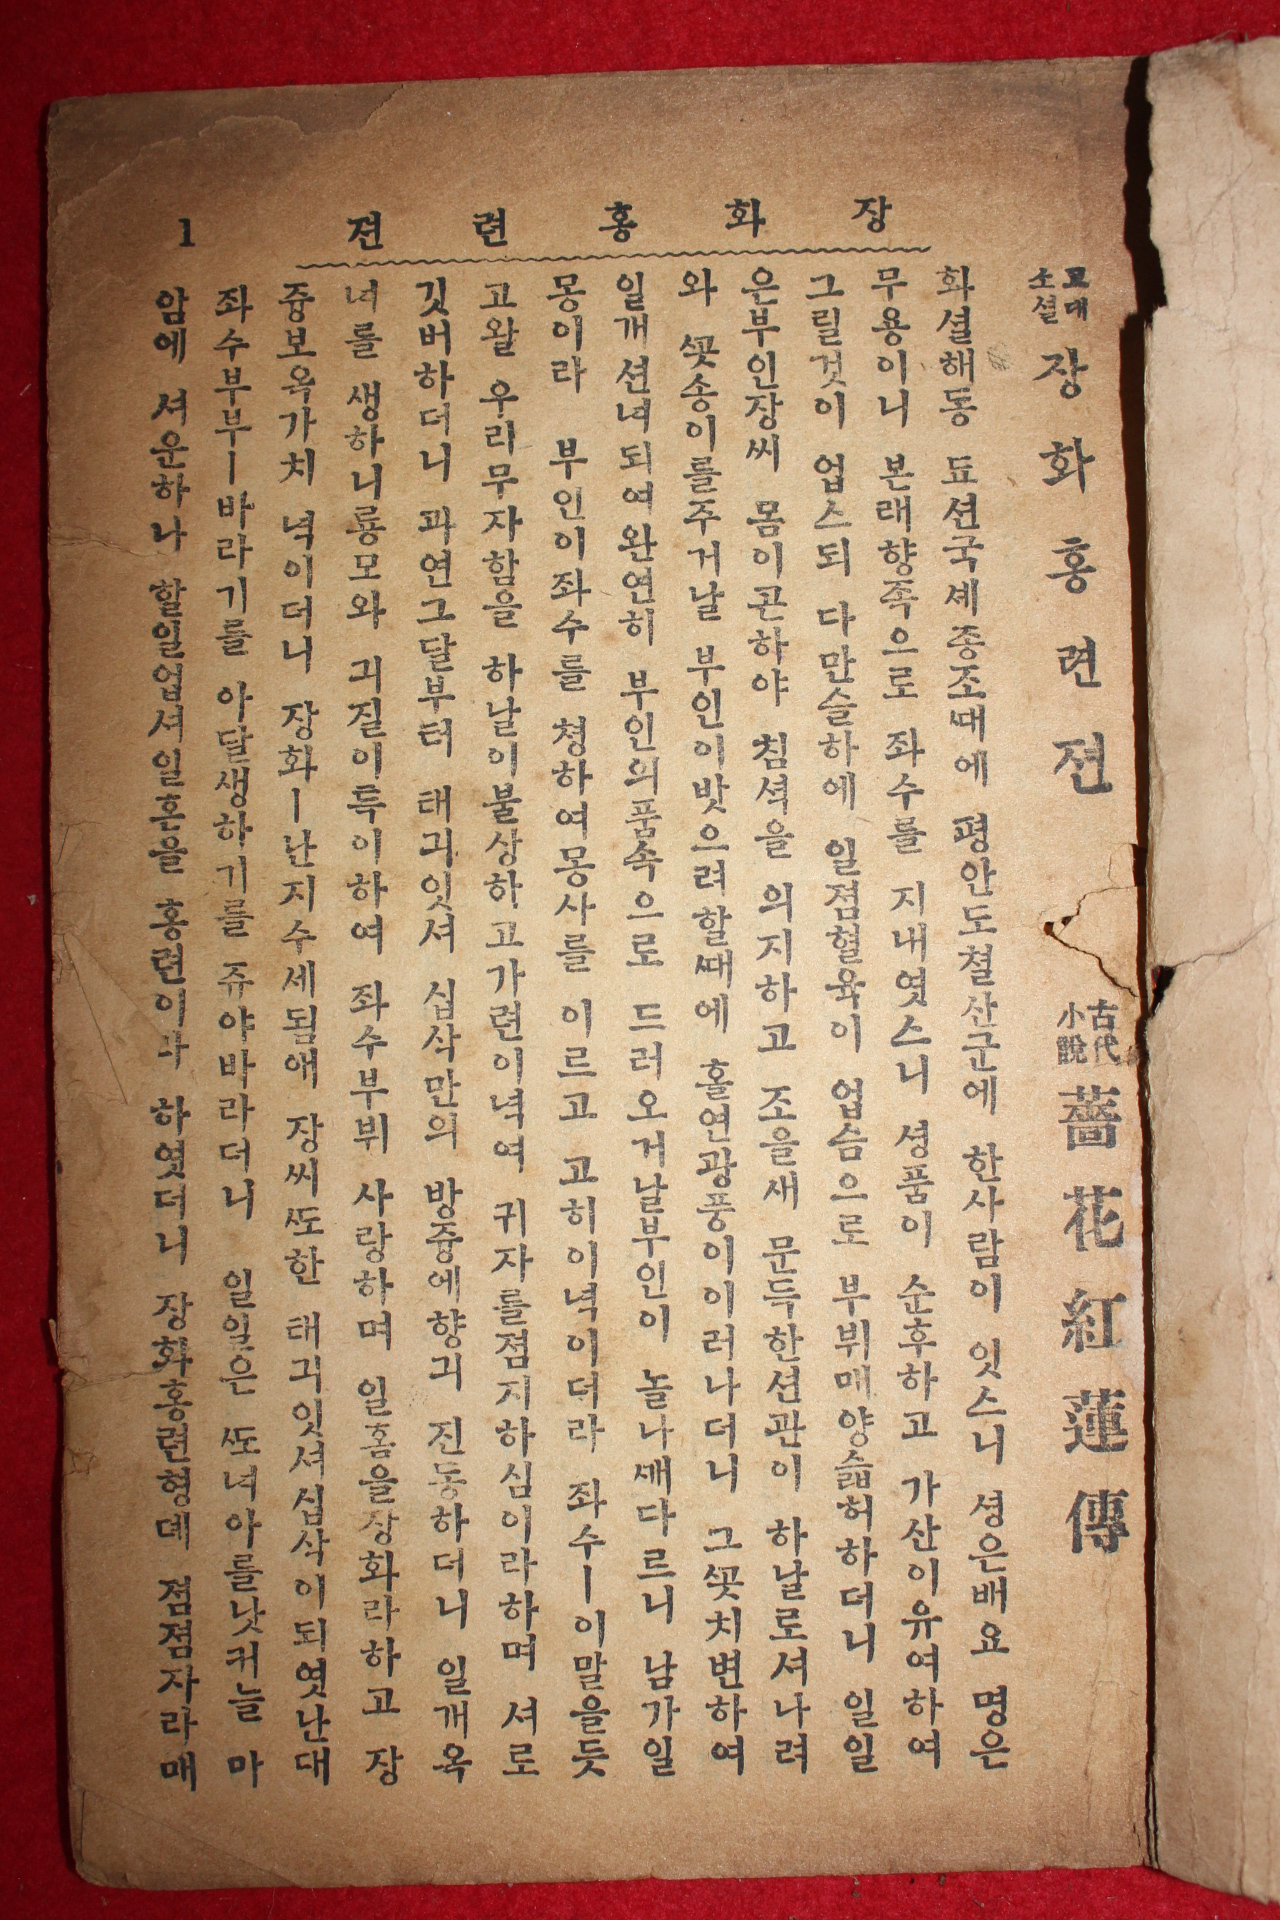 장화홍련젼
1
고대소셜 장화홍련젼 古代小說 薔花紅蓮傳
화셜해동 됴션국셰종조때에 평안도쳘산군에 한사람이 잇스니 셩은배요 명은
무용이니 본래향족으로 좌수를 지내엿스니 셩품이 순후하고 가산이유여하여
그릴것이 업스되 다만슬하에 일졈혈육이 업슴으로 부뷔매양슯허하더니 일일
은부인장씨 몸이곤하야 침셕을 의지하고 조을새 문득한션관이 하날로셔나려
와 꼿송이를주거날 부인이밧으려할때에 홀연광풍이이러나더니 그꼿치변하여
일개션녀되여완연히 부인의품속으로 드러오거날부인이 놀나깨다르니 남가일
몽이라 부인이좌수를 쳥하여몽사를 이르고 고히이녁이더라 좌수ㅣ이말을듯
고왈 우리무자함을 하날이불상하고가련이녁여 귀자를졈지하심이라하며 셔로
깃버하더니 과연그달부터 태긔잇셔 십삭만의 방즁에향긔 진동하더니 일개옥
녀를 생하니룡모와 긔질이특이하여 좌수부뷔 사랑하며 일홈을장화라하고 장
즁보옥가치 녁이더니 장화ㅣ난지수세됨애 장씨또한 태긔잇셔십삭이되엿난대
좌수부부ㅣ바라기를 아달생하기를 쥬야바라더니 일일은 또녀아를낫커늘 마
암에 셔운하나 할일업셔일흔을 홍련이라 하엿더니 장화홍련형뎨 졈졈자라매